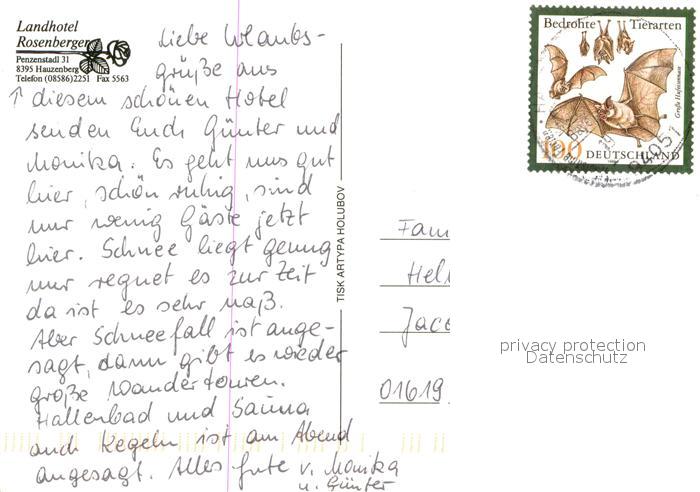 Landhotel
Rosenberger
Penzenstadl 31
8395 Hauzenberg
Telefon (08586)2251 Fax 5563
Liebe Urlaubs-
grüße aus
↑ diesem schönen Hotel
senden Euch Günter und
Monika. Es geht uns gut
hier, schön ruhig, sind
nur wenig Gäste jetzt
hier. Schnee liegt genug
nur regnet es zur Zeit
da ist es sehr naß.
Aber Schneefall ist ange-
sagt, dann gibt es wieder
große Wandertouren.
Hallenbad und Sauna
auch Kegeln ist am Abend
angesagt. Alles Gute v. Monika
u. Günter
TISK ARTYPA HOLUBOV
Bedrohte Tierarten
Große Hufeisennase
100 DEUTSCHLAND
94051
Fam
Hel
Jac
01619
privacy protection
Datenschutz